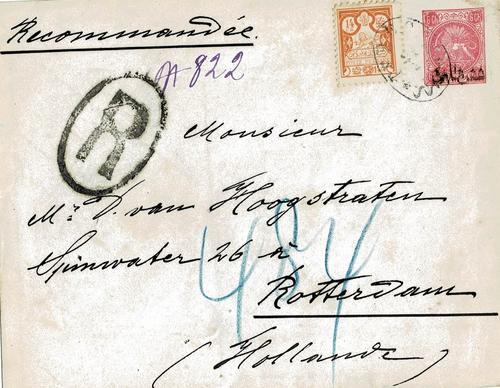 Recommandée.
№ 822
R
Monsieur
Mr D. van Hoogstraten
Spinwater 26 à
Rotterdam
(Hollande